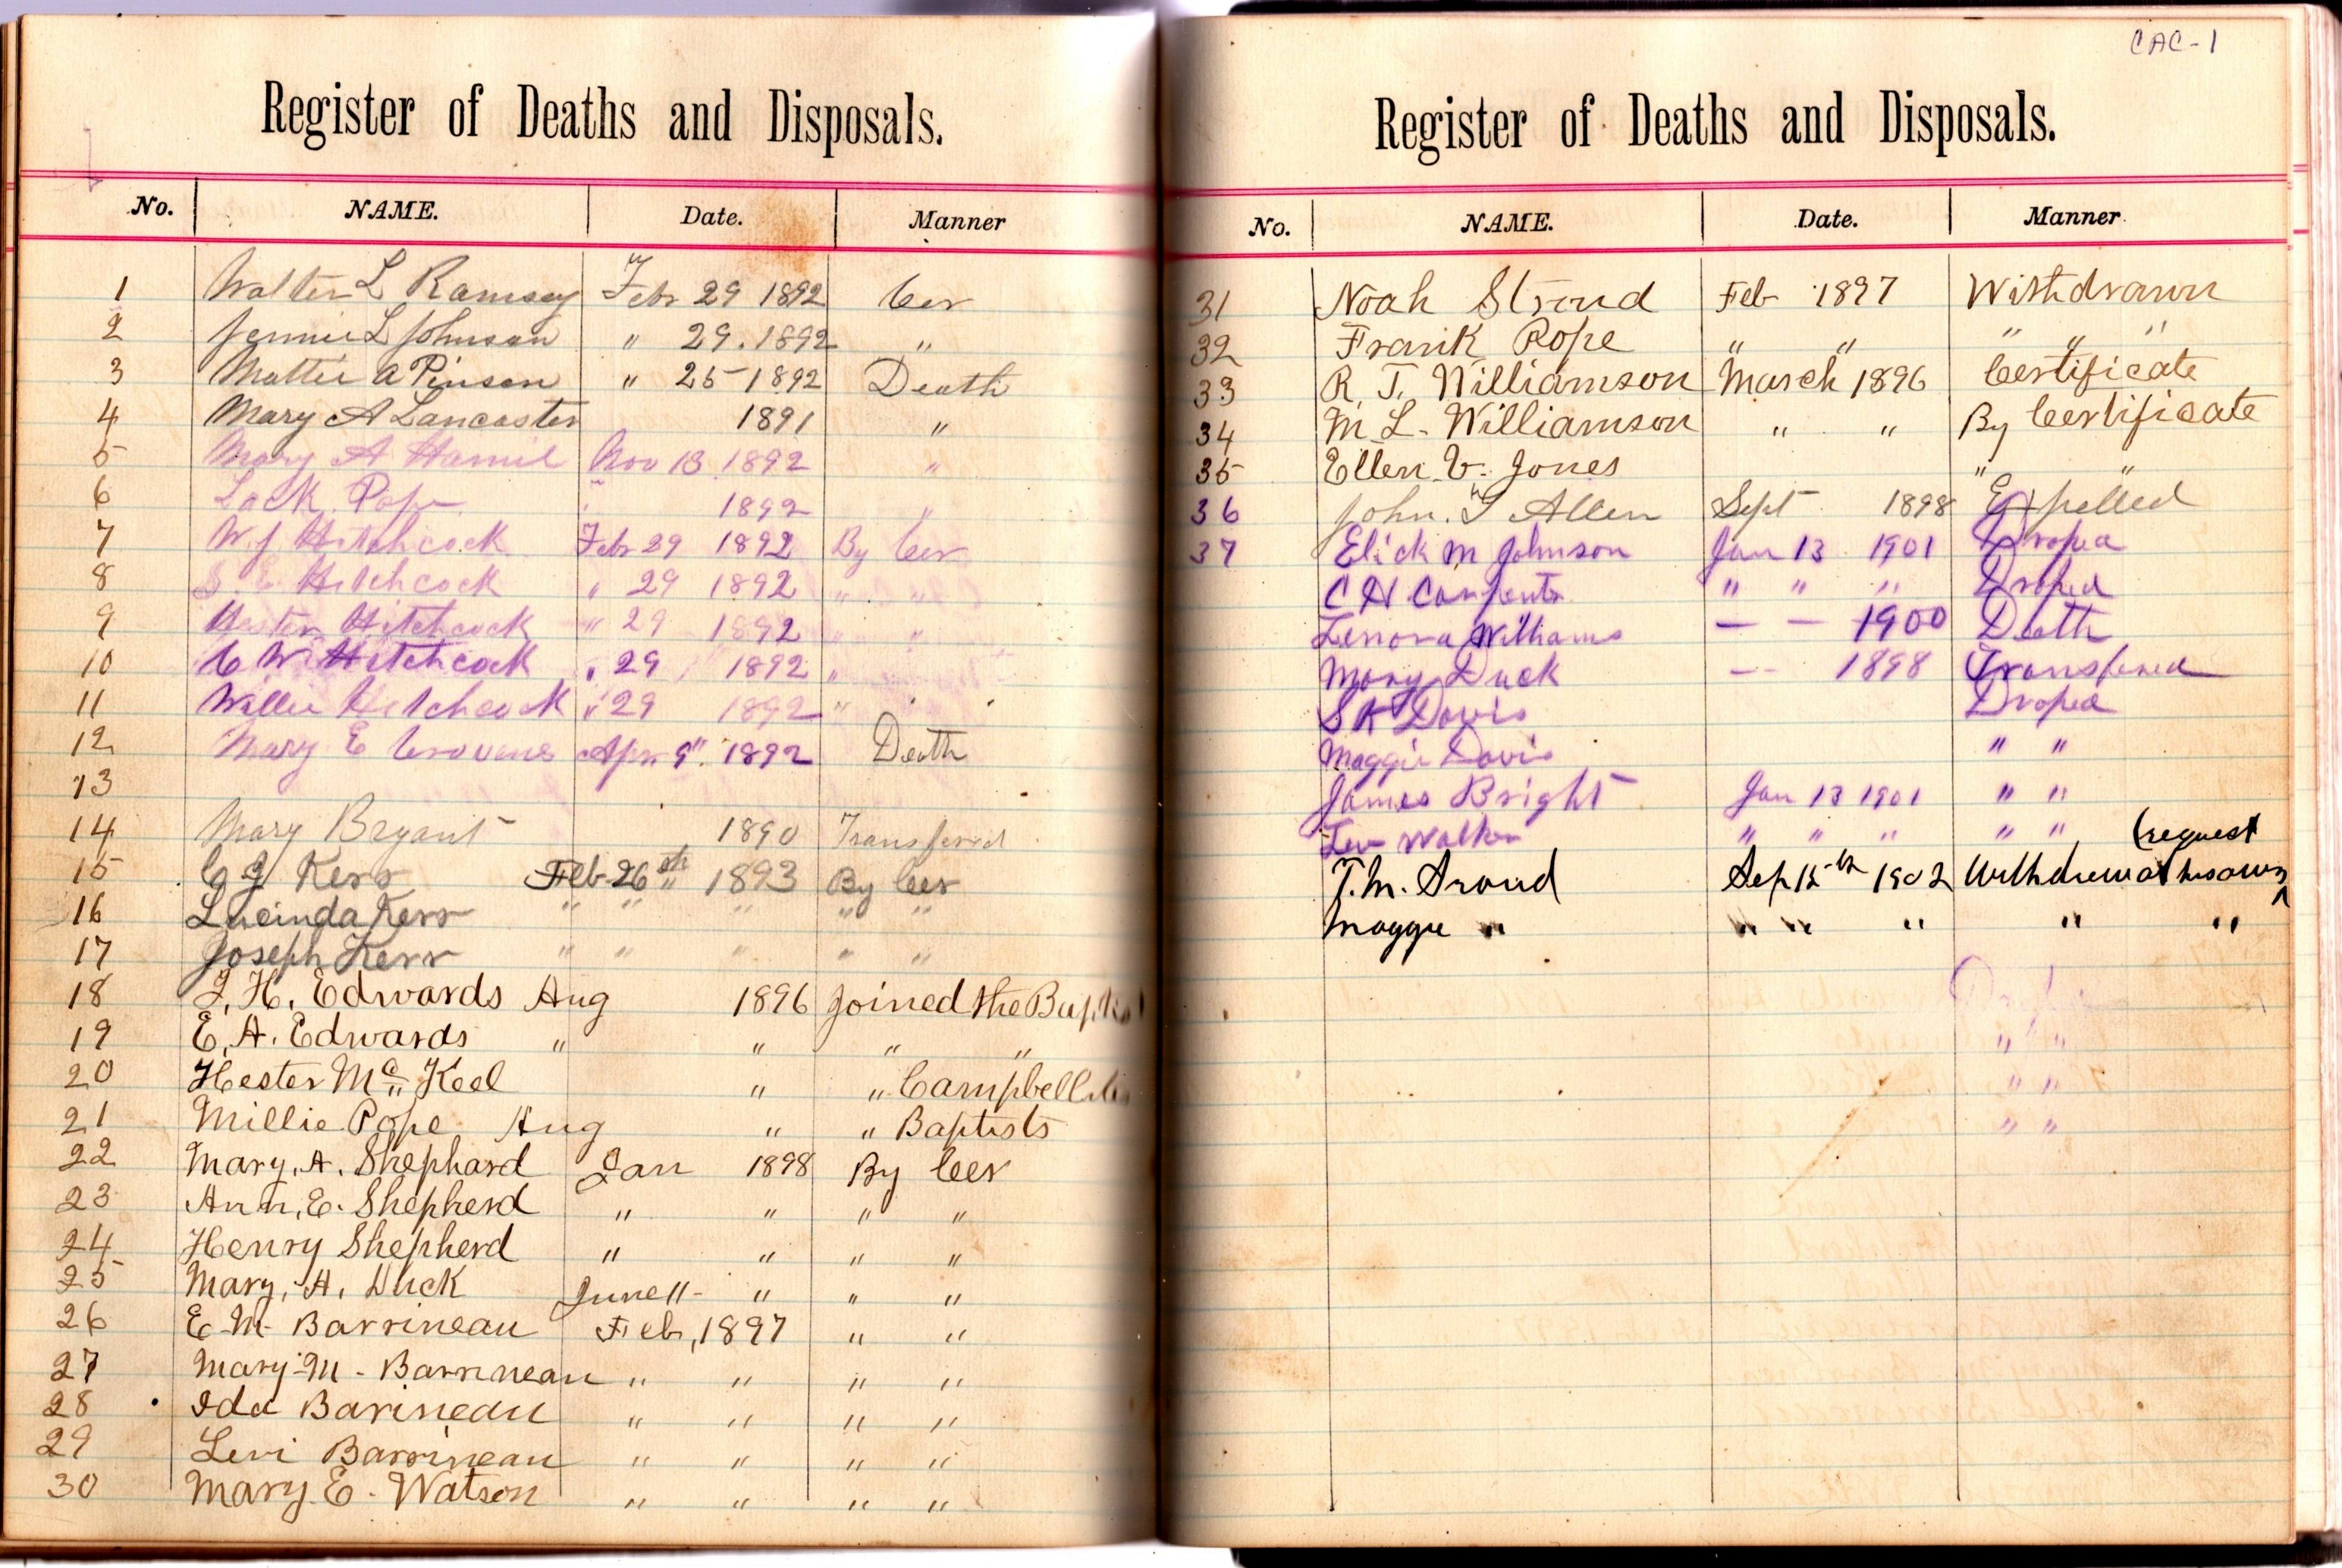 Register of Deaths and Disposals.
No. NAME. Date. Manner
1 Walter L Ramsey Febr 29 1892 Cer
2 Jennie L Johnson " 29. 1892 "
3 Mattie A Pinson " 25 1892 Death
4 Mary A Lancaster 1891 "
5 Mary A Hamil Nov 13 1892 "
6 Lock Pope " 1892 "
7 W. J. Hitchcock Febr 29 1892 By Cer
8 S. E. Hitchcock " 29 1892 " "
9 Hester Hitchcock " 29 1892 " "
10 C W Hitchcock " 29 1892 "
11 Willie Hitchcock " 29 1892 "
12 Mary E Apr 9" 1892 Death
13
14 Mary Bryant 1890 Transfered
15 C J Kerr Feb 26th 1893 By Cer
16 Lucinda Kerr " " " " "
17 Joseph Kerr " " " " "
18 J. H. Edwards Aug 1896 Joined the Baptist
19 E. A. Edwards " " " "
20 Hester Mc Keel " "
21 Millie Pope Aug " " Baptists
22 Mary. A. Shephard Jan 1898 By Cer
23 Ann. E. Shepherd " " " "
24 Henry Shepherd " " " "
25 Mary. A. Duck June 11 - " " "
26 E. M. Barrineau Feb, 1897 " "
27 Mary M - Barrineau " " " "
28 Ida Barineau " " " "
29 Levi Barrineau " " " "
30 Mary E. Watson " " " "
CAC-1
Register of Deaths and Disposals.
No. NAME. Date. Manner.
31 Noah Stroud Feb 1897 Withdrawn
32 Frank Pope " " " " "
33 R. T. Williamson March 1896 Certificate
34 M. L. Williamson " " By Certificate
35 Ellen V. Jones " "
36 John. T Allen Sept 1898 Expelled
37 Elick M Johnson Jan 13 1901 Droped
C H Carpenter " " " Droped
Lenora Williams — — 1900 Death
Mary Duck — 1898 Transfered
S K Davis Droped
Maggie Davis " "
James Bright Jan 13 1901 " "
Walker " " " " "
(request
T. M. Sroud Sep 15th 1902 Withdrew at his own ^
Maggie " " " " " "
" "
" "
" "